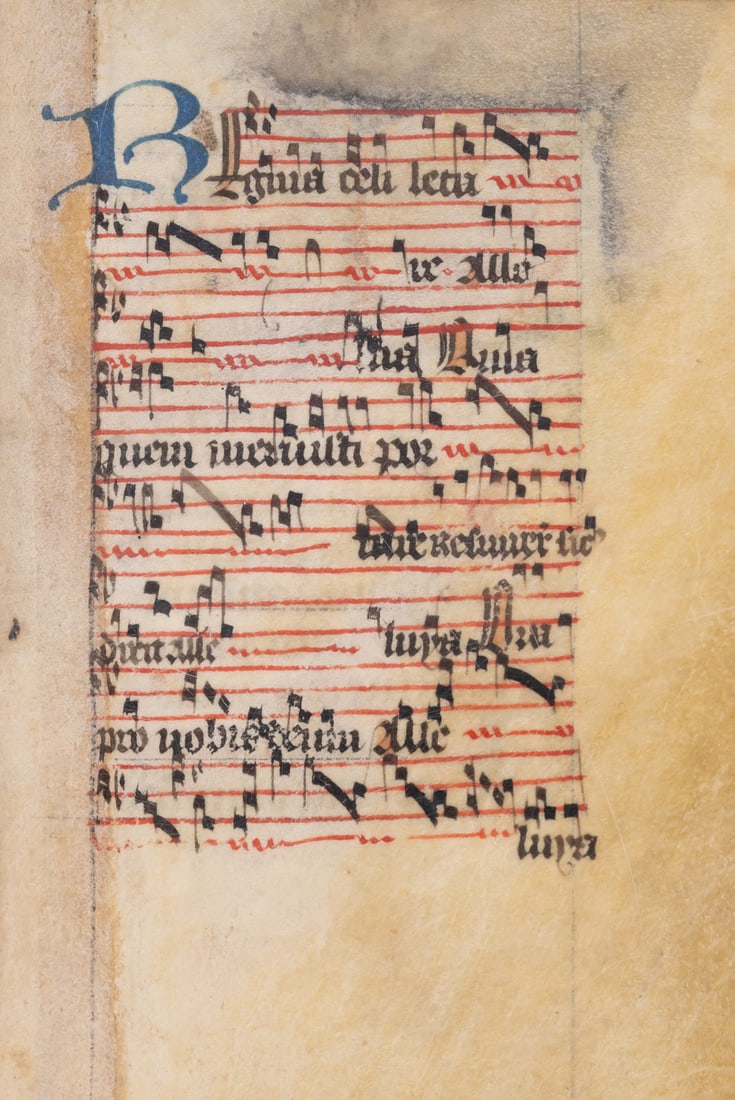 REgina celi leta
re Alle
luia Quia
quem meruisti por
tare Resurrex sic
dixit alle luya Ora
pro nobis deum Alle
luya